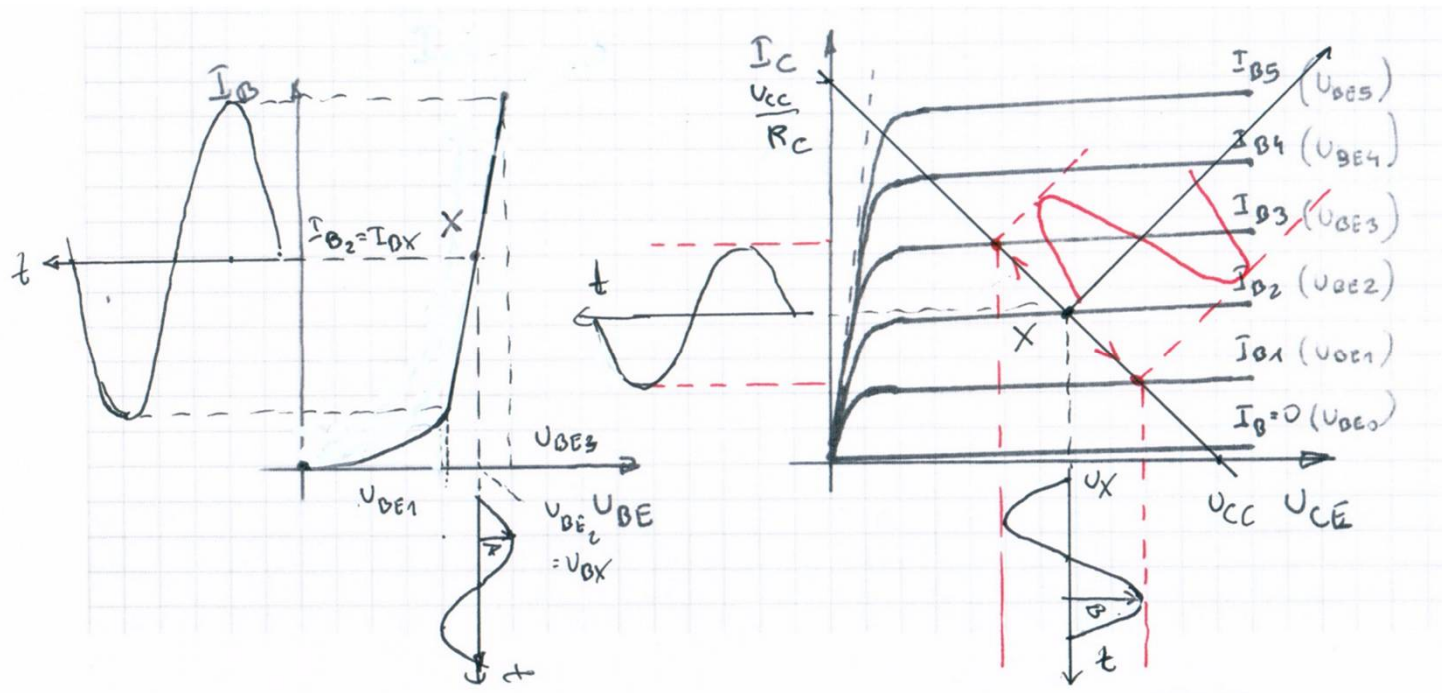 I_B
t
I_B2 = I_BX
X
U_BE3
U_BE1
U_BE2
= U_BX
U_BE
A
t
I_C
U_CC
R_C
t
X
I_B5 (U_BE5)
I_B4 (U_BE4)
I_B3 (U_BE3)
I_B2 (U_BE2)
I_B1 (U_BE1)
I_B=0 (U_BE0)
U_X
U_CC
U_CE
B
t